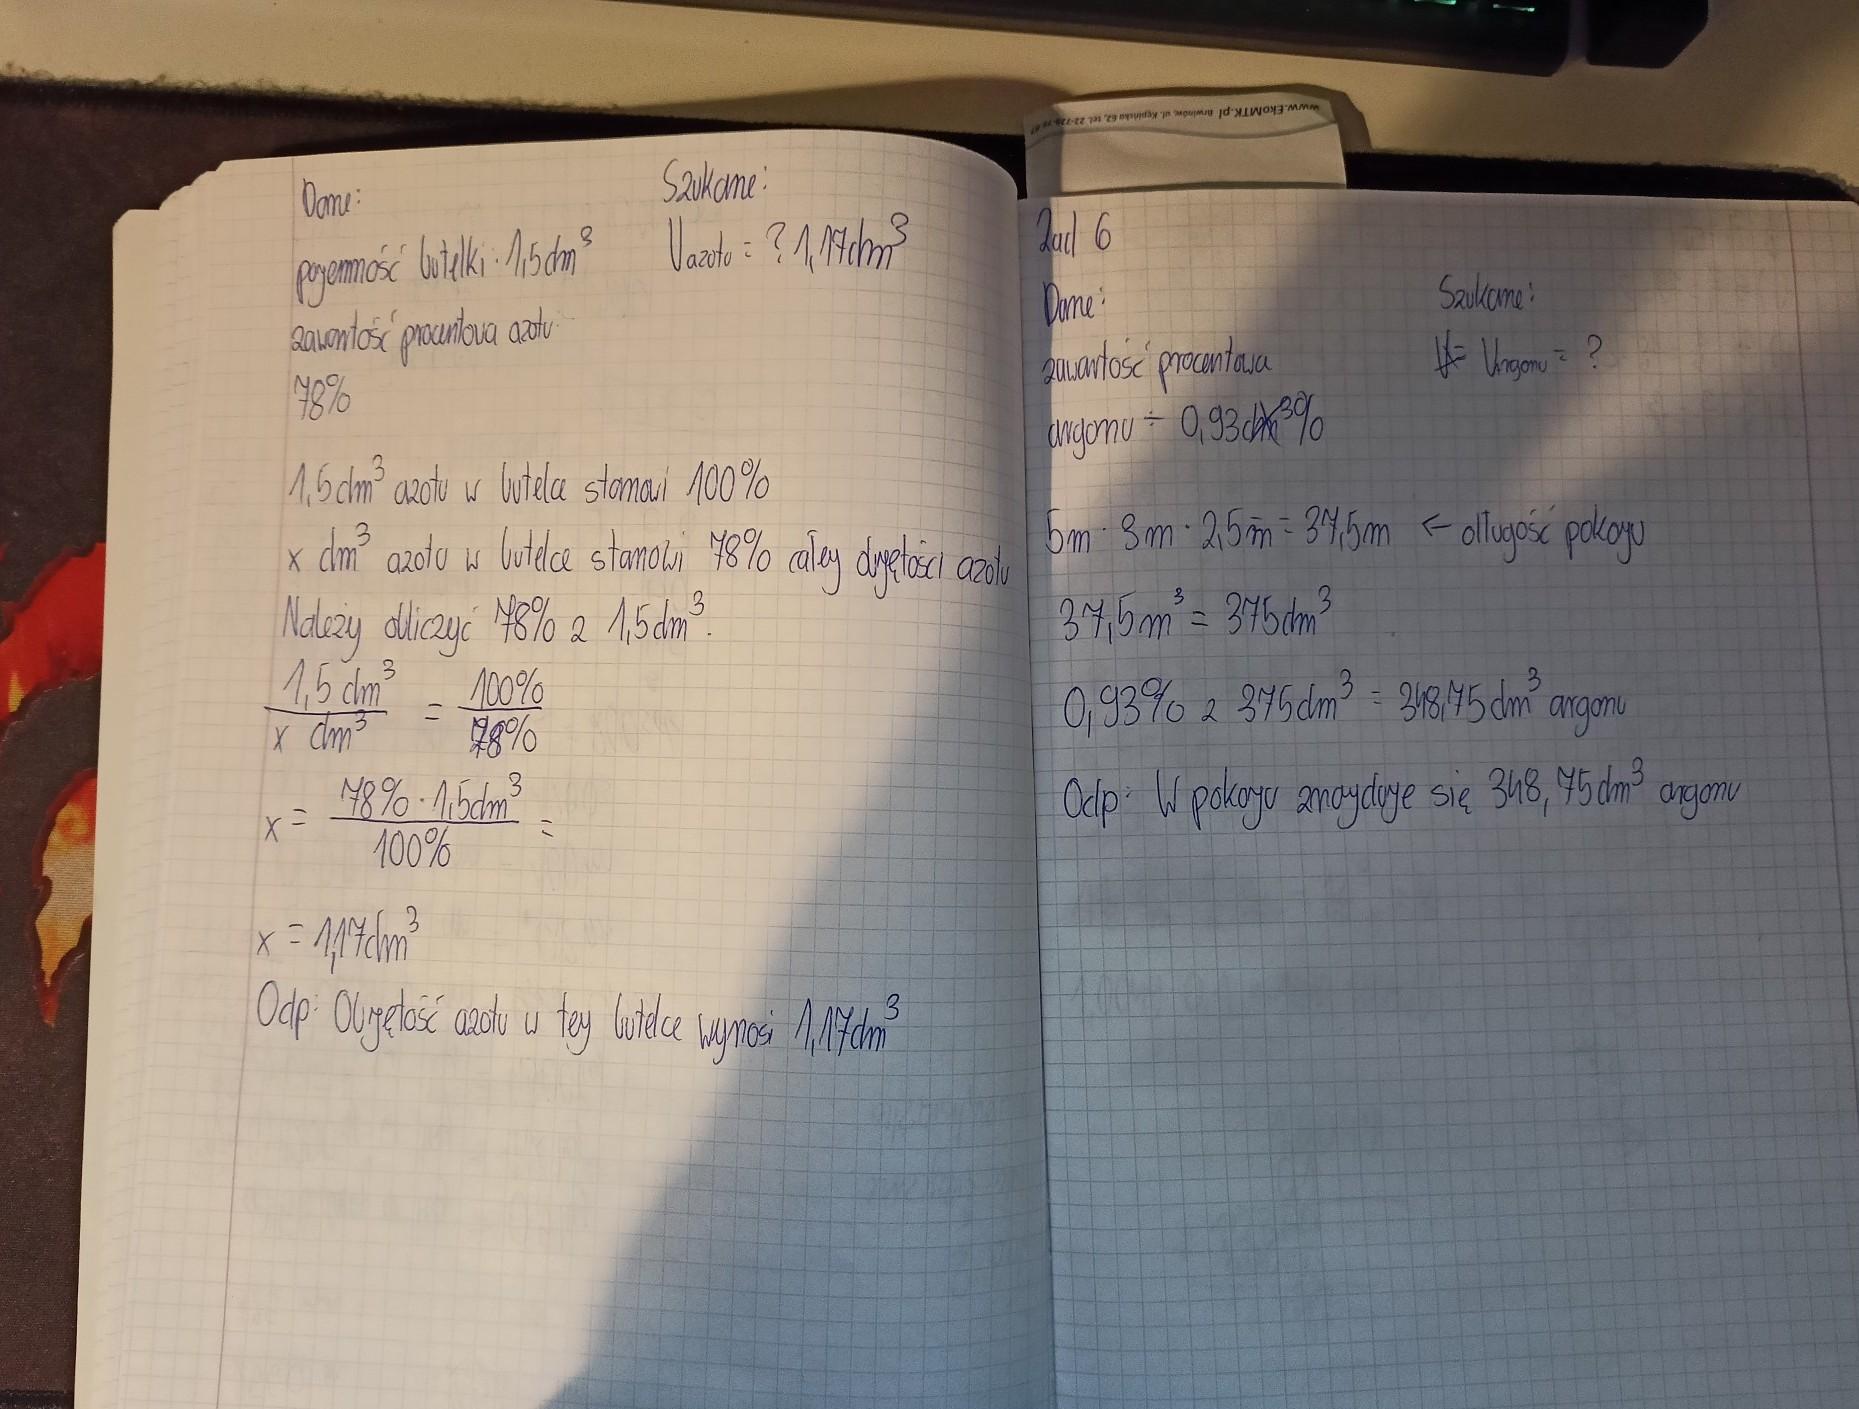 Dane:
Szukane:
pojemność butelki: 1,5dm³
Vazotu = ? 1,17dm³
zawartość procentowa azotu:
78%
1,5dm³ azotu w butelce stanowi 100%
x dm³ azotu w butelce stanowi 78% całej objętości azotu
Należy obliczyć 78% z 1,5dm³.
1,5 dm³ / x dm³ = 100% / 78%
x = 78% · 1,5dm³ / 100% =
x = 1,17dm³
Odp: Objętość azotu w tej butelce wynosi 1,17dm³
www.EkoMTK.pl Brwinów, ul. Kępińska 62, tel. 22-729
Zad 6
Dane:
Szukane:
zawartość procentowa
Vargonu = ?
argonu = 0,93%
5m · 3m · 2,5m = 37,5m ← długość pokoju
37,5m³ = 375dm³
0,93% z 375dm³ = 348,75dm³ argonu
Odp: W pokoju znajduje się 348,75dm³ argonu